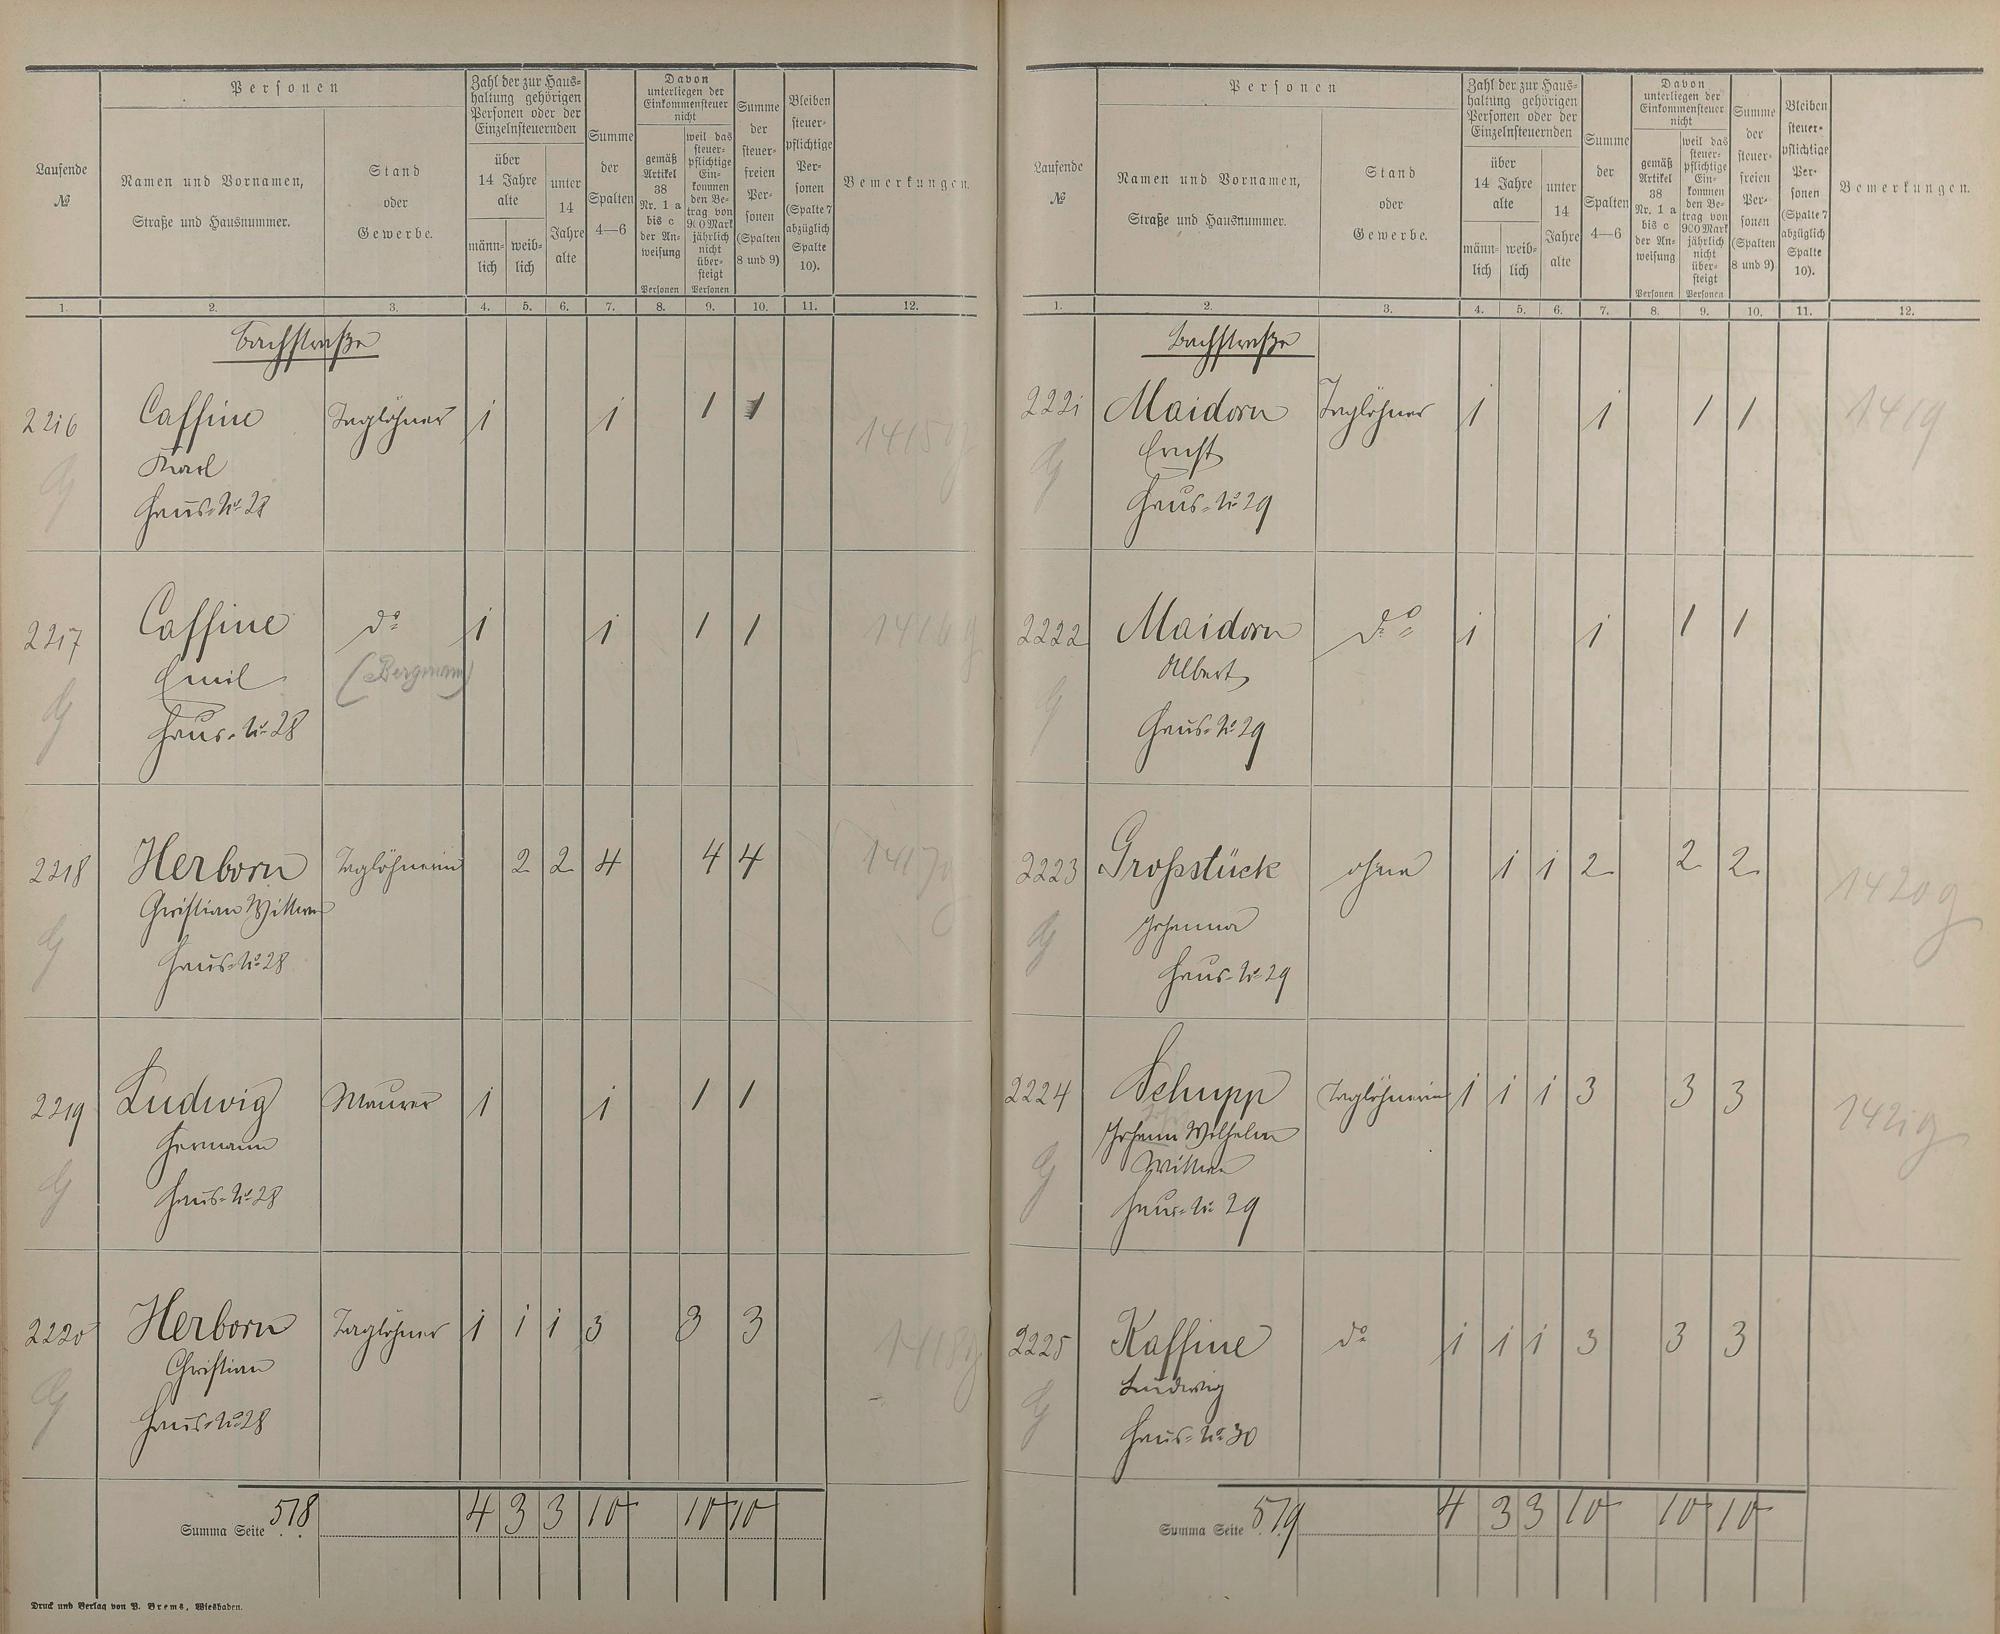 Laufende
№
Personen
Namen und Vornamen,
Straße und Hausnummer.
Stand
oder
Gewerbe.
Zahl der zur Haus-
haltung gehörigen
Personen oder der
Einzelnsteuernden
über
14 Jahre
alte
männ-
lich
weib-
lich
unter
14
Jahre
alte
Summe
der
Spalten
4—6
Davon
unterliegen der
Einkommensteuer
nicht
gemäß
Artikel
38
Nr. 1 a
bis c
der An-
weisung
Personen
weil das
steuer-
pflichtige
Ein-
kommen
den Be-
trag von
900 Mark
jährlich
nicht
über-
steigt
Personen
Summe
der
steuer-
freien
Per-
sonen
(Spalten
8 und 9)
Bleiben
steuer-
pflichtige
Per-
sonen
(Spalte 7
abzüglich
Spalte
10).
Bemerkungen.
1. 2. 3. 4. 5. 6. 7. 8. 9. 10. 11. 12.
Bachstraße
2216 Caffine Taglöhner 1 1 1 1 1415 g
Karl
Haus-No 28
2217 Caffine do 1 1 1 1 1416 g
Emil (Bergmann)
Haus-No 28
2218 Herborn Taglöhnerin 2 2 4 4 4 1417 g
Christian Wittwe
Haus-No 28
2219 Ludwig Maurer 1 1 1 1
Hermann
Haus-No 28
2220 Herborn Taglöhner 1 1 1 3 3 3 1418 g
Christian
Haus-No 28
Summa Seite 518 4 3 3 10 10 10
Druck und Verlag von P. Brems, Wiesbaden.
Laufende
№
Personen
Namen und Vornamen,
Straße und Hausnummer.
Stand
oder
Gewerbe.
Zahl der zur Haus-
haltung gehörigen
Personen oder der
Einzelnsteuernden
über
14 Jahre
alte
männ-
lich
weib-
lich
unter
14
Jahre
alte
Summe
der
Spalten
4—6
Davon
unterliegen der
Einkommensteuer
nicht
gemäß
Artikel
38
Nr. 1 a
bis c
der An-
weisung
Personen
weil das
steuer-
pflichtige
Ein-
kommen
den Be-
trag von
900 Mark
jährlich
nicht
über-
steigt
Personen
Summe
der
steuer-
freien
Per-
sonen
(Spalten
8 und 9)
Bleiben
steuer-
pflichtige
Per-
sonen
(Spalte 7
abzüglich
Spalte
10).
Bemerkungen.
1. 2. 3. 4. 5. 6. 7. 8. 9. 10. 11. 12.
Bachstraße
2221 Maidorn Taglöhner 1 1 1 1 1419
Ernst
Haus-No 29
2222 Maidorn do 1 1 1 1
Albert
Haus-No 29
2223 Großstück ohne 1 1 2 2 2 1420 g
Johanna
Haus-No 29
2224 Schupp Taglöhnerin 1 1 1 3 3 3 1421 g
Johann Wilhelm
Wittwe
Haus-No 29
2225 Kaffine do 1 1 1 3 3 3
Ludwig
Haus-No 30
Summa Seite 519 4 3 3 10 10 10